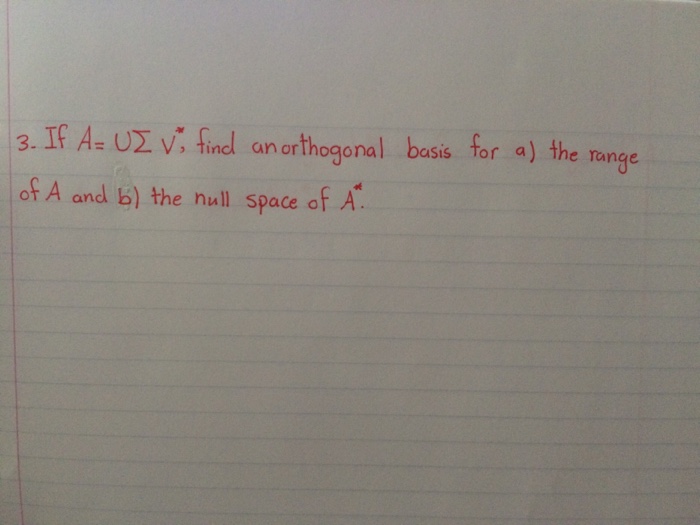 3. If A = UΣV*, find an orthogonal basis for a) the range
of A and b) the null space of A*.